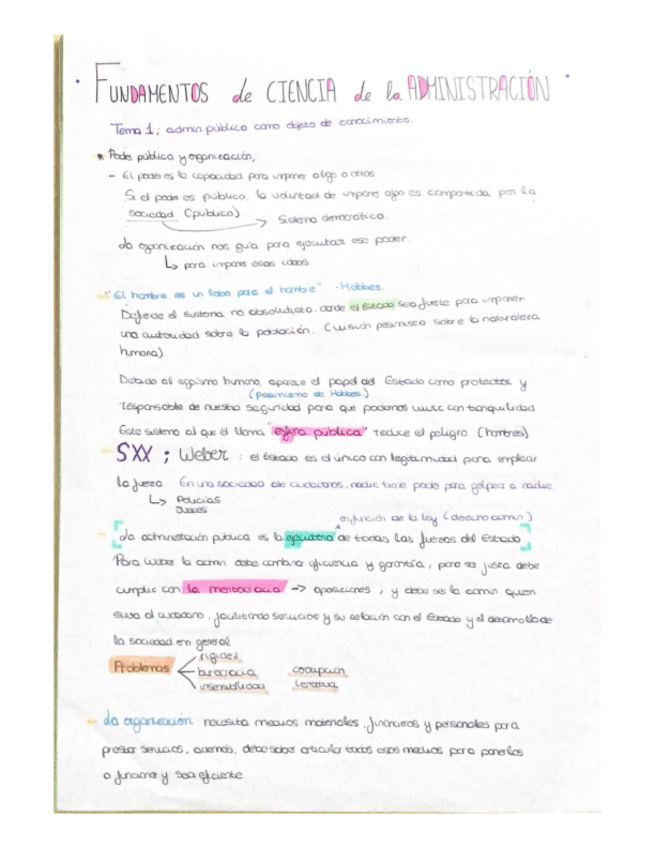 FUNDAMENTOS de CIENCIA de la ADMINISTRACIÓN
Tema 1; admin.pública como objeto de conocimiento.
* Poder público y organización;
- El poder es la capacidad para imponer algo a otros.
Si el poder es público, la voluntad de imponer algo es compartida, por la
sociedad (público) → Sistema democrático.
La organización nos guía para ejecutar ese poder.
↳ para imponer esas ideas.
- "El hombre es un lobo para el hombre" - Hobbes.
Defiende el sistema no absolutista. donde el Estado sea fuerte para imponer
una autoridad sobre la población. (visión pesimista sobre la naturaleza
humana).
Debido al egoísmo humano, aparece el papel del Estado como protector y
(pesimismo de Hobbes.)
responsable de nuestra seguridad para que podamos vivir con tranquilidad
Este sistema al que él llama "esfera pública" reduce el peligro (hombres).
- SXX ; Weber : el Estado es el único con legitimidad para emplear
la fuerza En una sociedad de ciudadanos, nadie tiene poder para golpear a nadie.
↳ Policías
Jueces
en función de la ley (derecho admin)
- [La administración pública es la ejecutora de todas las fuerzas del Estado]
Para Weber la admin debe combinar eficiencia y garantía, para ser justa debe
cumplir con la meritocracia -> oposiciones, y debe ser la admin. quien
sirva al ciudadano, facilitando servicios y su relación con el Estado y el desarrollo de
la sociedad en general
Problemas rigidez
burocracia corrupción
insensibilidad lentitud
- La organización necesita medios materiales, financieros y personales para
prestar servicios, además, debe saber articular todos esos medios para ponerlos
a funcionar y sea eficiente